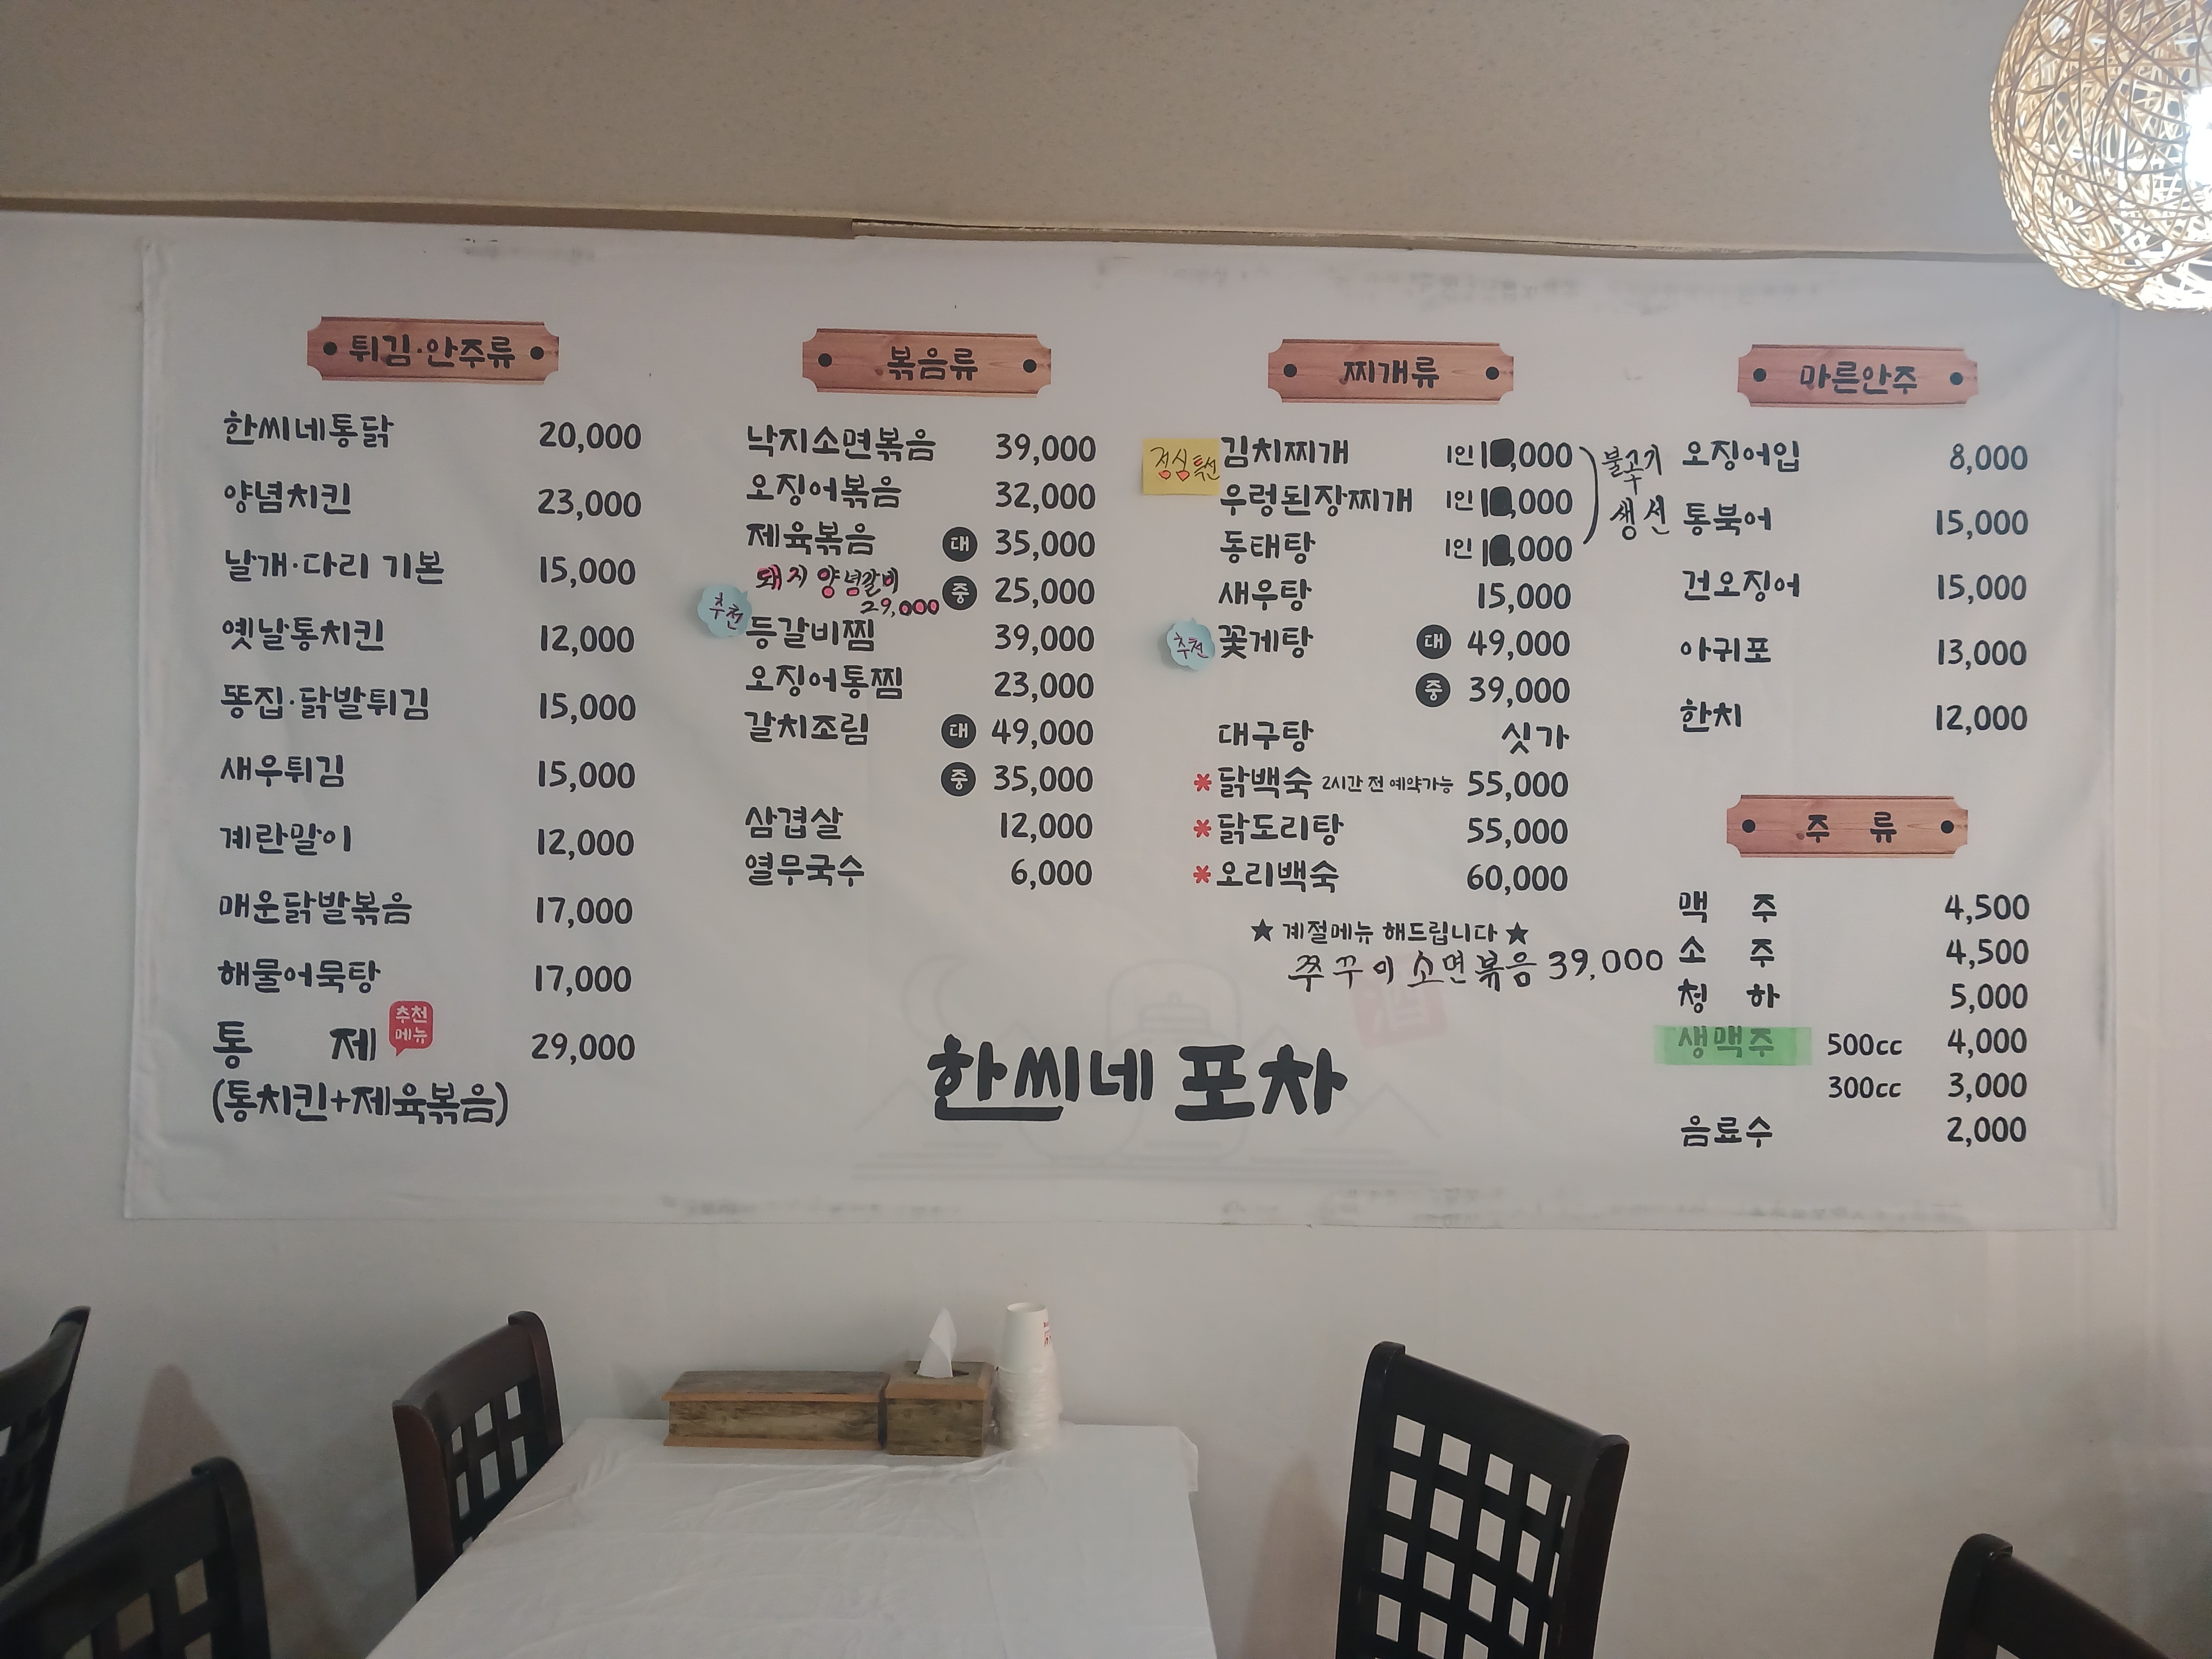 튀김·안주류
한씨네통닭 20,000
양념치킨 23,000
날개·다리 기본 15,000
옛날통치킨 12,000
똥집·닭발튀김 15,000
새우튀김 15,000
계란말이 12,000
매운닭발볶음 17,000
해물어묵탕 17,000
통 제 추천메뉴 29,000
(통치킨+제육볶음)
볶음류
낙지소면볶음 39,000
오징어볶음 32,000
제육볶음 대 35,000
중 25,000
돼지 양념갈비
29,000
추천
등갈비찜 39,000
오징어통찜 23,000
갈치조림 대 49,000
중 35,000
삼겹살 12,000
열무국수 6,000
찌개류
점심특선
김치찌개 1인
우렁된장찌개 1인
동태탕 1인
불고기
생선
새우탕 15,000
추천
꽃게탕 대 49,000
중 39,000
대구탕 싯가
*닭백숙 2시간 전 예약가능 55,000
*닭도리탕 55,000
*오리백숙 60,000
★ 계절메뉴 해드립니다 ★
쭈꾸미소면볶음 39,000
마른안주
오징어입 8,000
통북어 15,000
건오징어 15,000
아귀포 13,000
한치 12,000
주 류
맥 주 4,500
소 주 4,500
청 하 5,000
생맥주 500cc 4,000
300cc 3,000
음료수 2,000
한씨네 포차